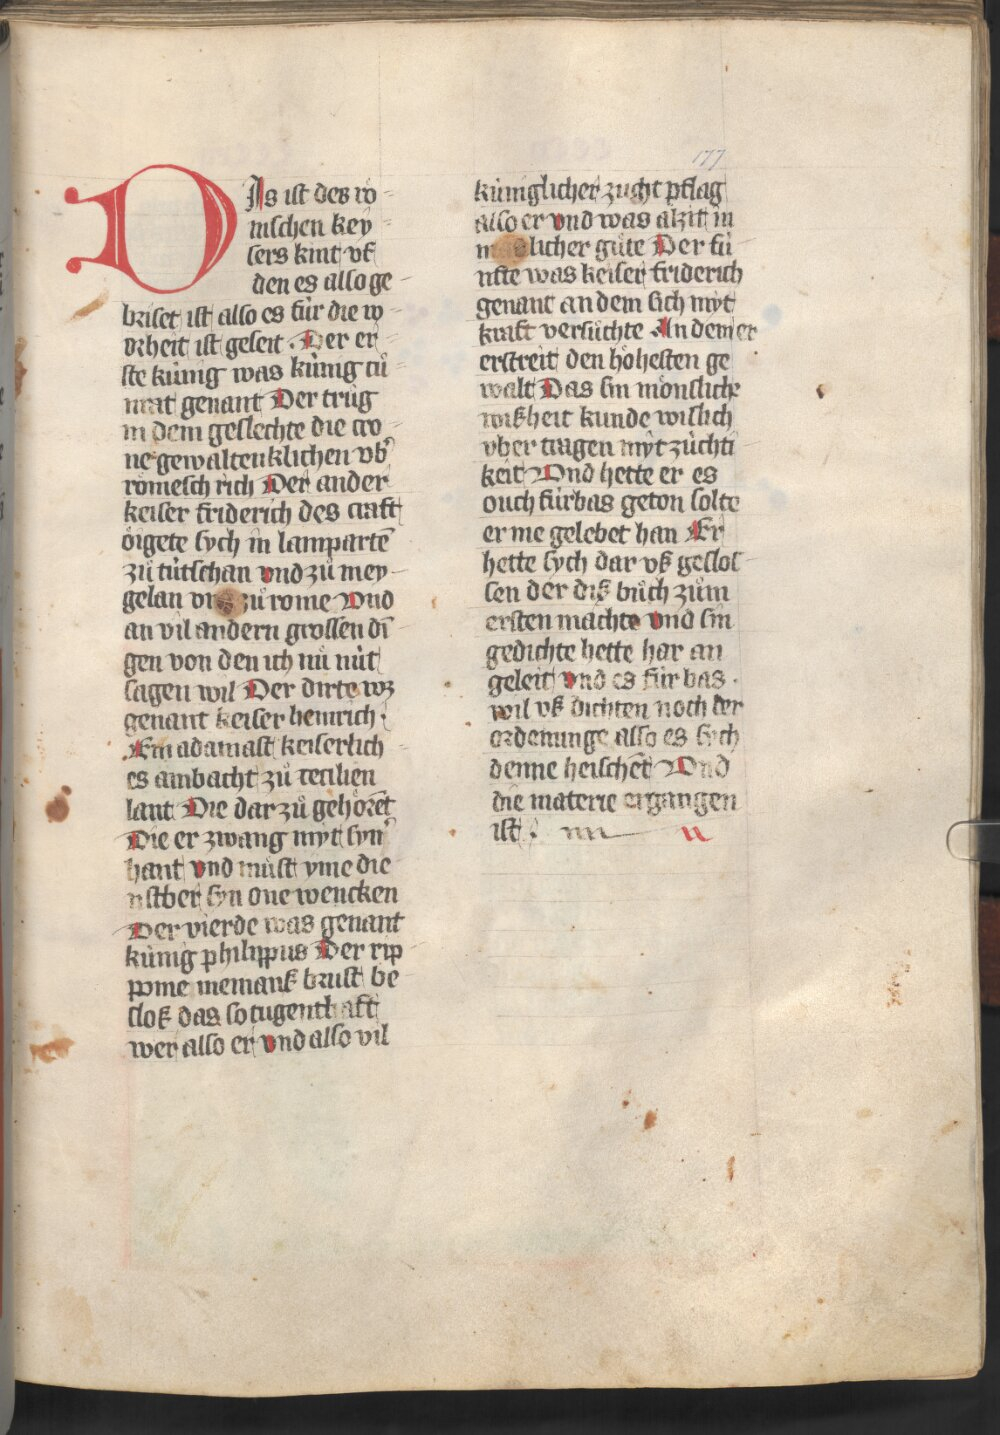 177
DIs ist des rö-
mschen key-
sers kint vß
den es also ge-
briset ist also es für die w-
orheit ist geseit. Der er-
ste künig was künig ců-
nrat genant Der trůg
in dem geslechte die cro-
ne gewalteklichen vb'
römesch rich Der ander
keiser friderich des craft
öigete sych in lampartē
zů tütschan vnd zů mey-
gelan vn zů rome Vnd
an vil andern grossen di-
gen von den ich nů nüt
sagen wil Der dirte wz
genant keiser heinrich.
Ein adamast keiserlich
es ambacht zů cecilien
lant Die dar zů gehörēt
Die er zwang myt syn'
hant vnd můst yme die-
nstber syn one wencken
Der vierde was genant
künig philippus Der ripp-
ppme niemanß brust be-
sloß das so tugenthaft
wer also er vnd also vil
küniglicher zucht pflag
also er vnd was alzit in
licher gůte Der fü-
nfte was keiser friderich
genant an dem sich myt
kraft versůchte An dem er
erstreit den höhesten ge-
walt Das sin mönsliche
wißheit kunde wislich
vber tragen myt züchti-
keit Vnd hette er es
ouch fürbas geton solte
er me gelebet han Er
hette sych dar vß geslos-
sen der diß bůch zům
ersten machte vnd sin
gedichte hette har an
geleit vnd es für bas.
wil vß dichten noch der
ordenunge also es sych
denne heischet Vnd
die materie ergangen
ist.